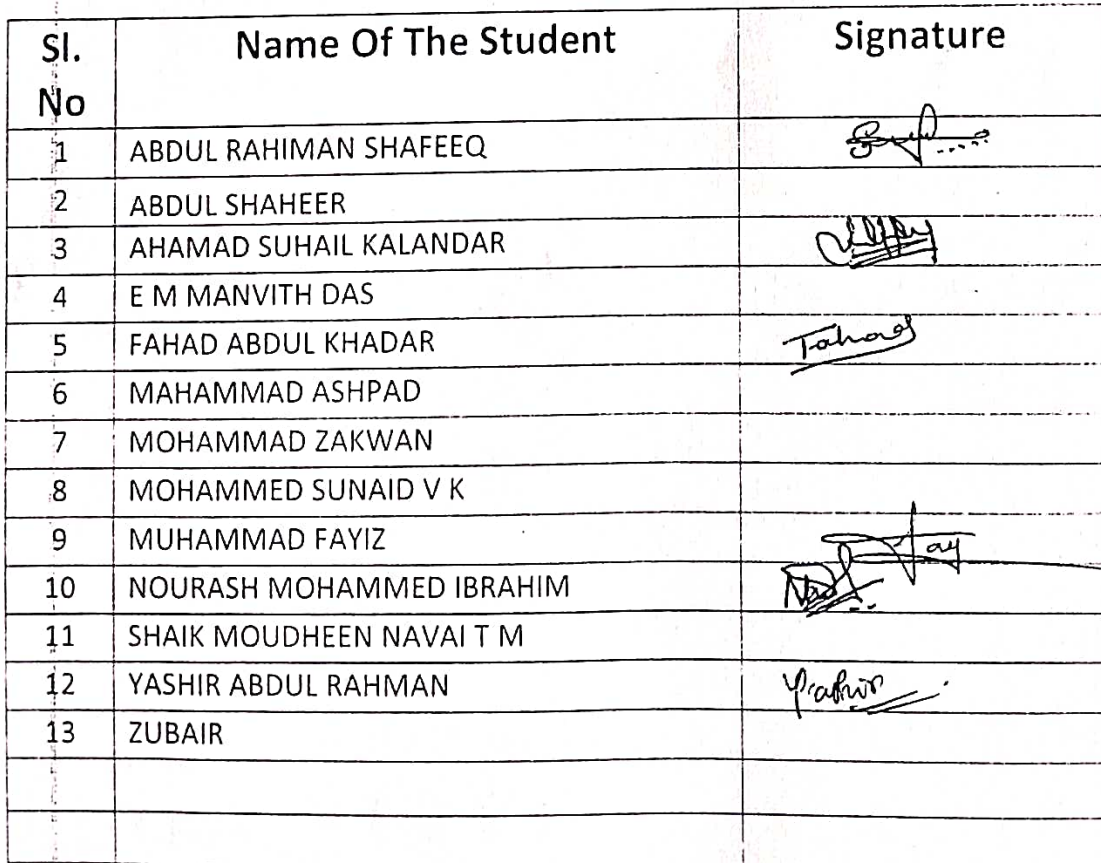 Sl. No Name Of The Student Signature
1 ABDUL RAHIMAN SHAFEEQ
2 ABDUL SHAHEER
3 AHAMAD SUHAIL KALANDAR
4 E M MANVITH DAS
5 FAHAD ABDUL KHADAR Fahad
6 MAHAMMAD ASHPAD
7 MOHAMMAD ZAKWAN
8 MOHAMMED SUNAID V K
9 MUHAMMAD FAYIZ
10 NOURASH MOHAMMED IBRAHIM
11 SHAIK MOUDHEEN NAVAI T M
12 YASHIR ABDUL RAHMAN
13 ZUBAIR